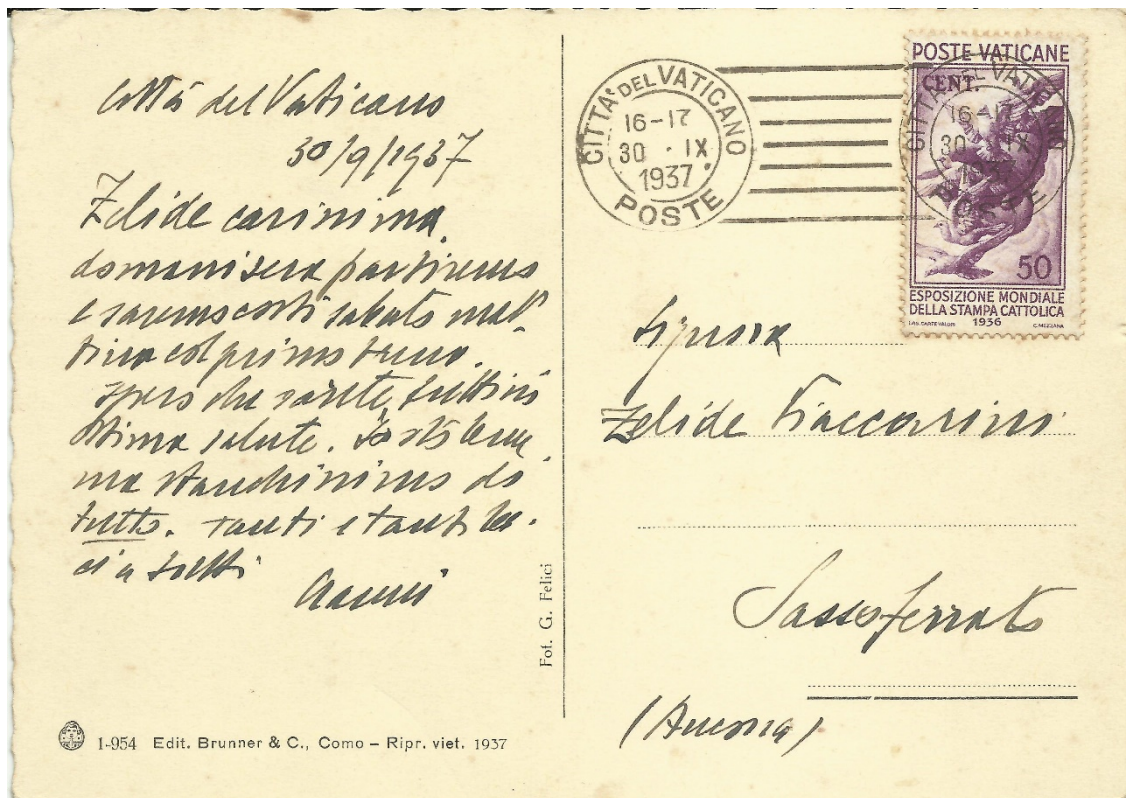 Città del Vaticano
30/9/1937
Zelide carinima
domani sera partiremo
e saremo costì sabato mat-
tina col primo treno.
spero che sarete tutti in
ottima salute. Io sto bene
ma stanchinimo di
tutto. Tanti e tanti ba-
ci a tutti
Fot. G. Felici
1-954 Edit. Brunner & C., Como – Ripr. viet. 1937
CITTÀ DEL VATICANO
16-17
30 · IX
1937
POSTE
POSTE VATICANE
CENT.
CITTÀ DEL VATICANO
16-17
30 · IX
1937
POSTE
50
ESPOSIZIONE MONDIALE
DELLA STAMPA CATTOLICA
1936
C. MEZZANA
Signora
Zelide Fiaccarini
Sassoferrato
(Ancona)